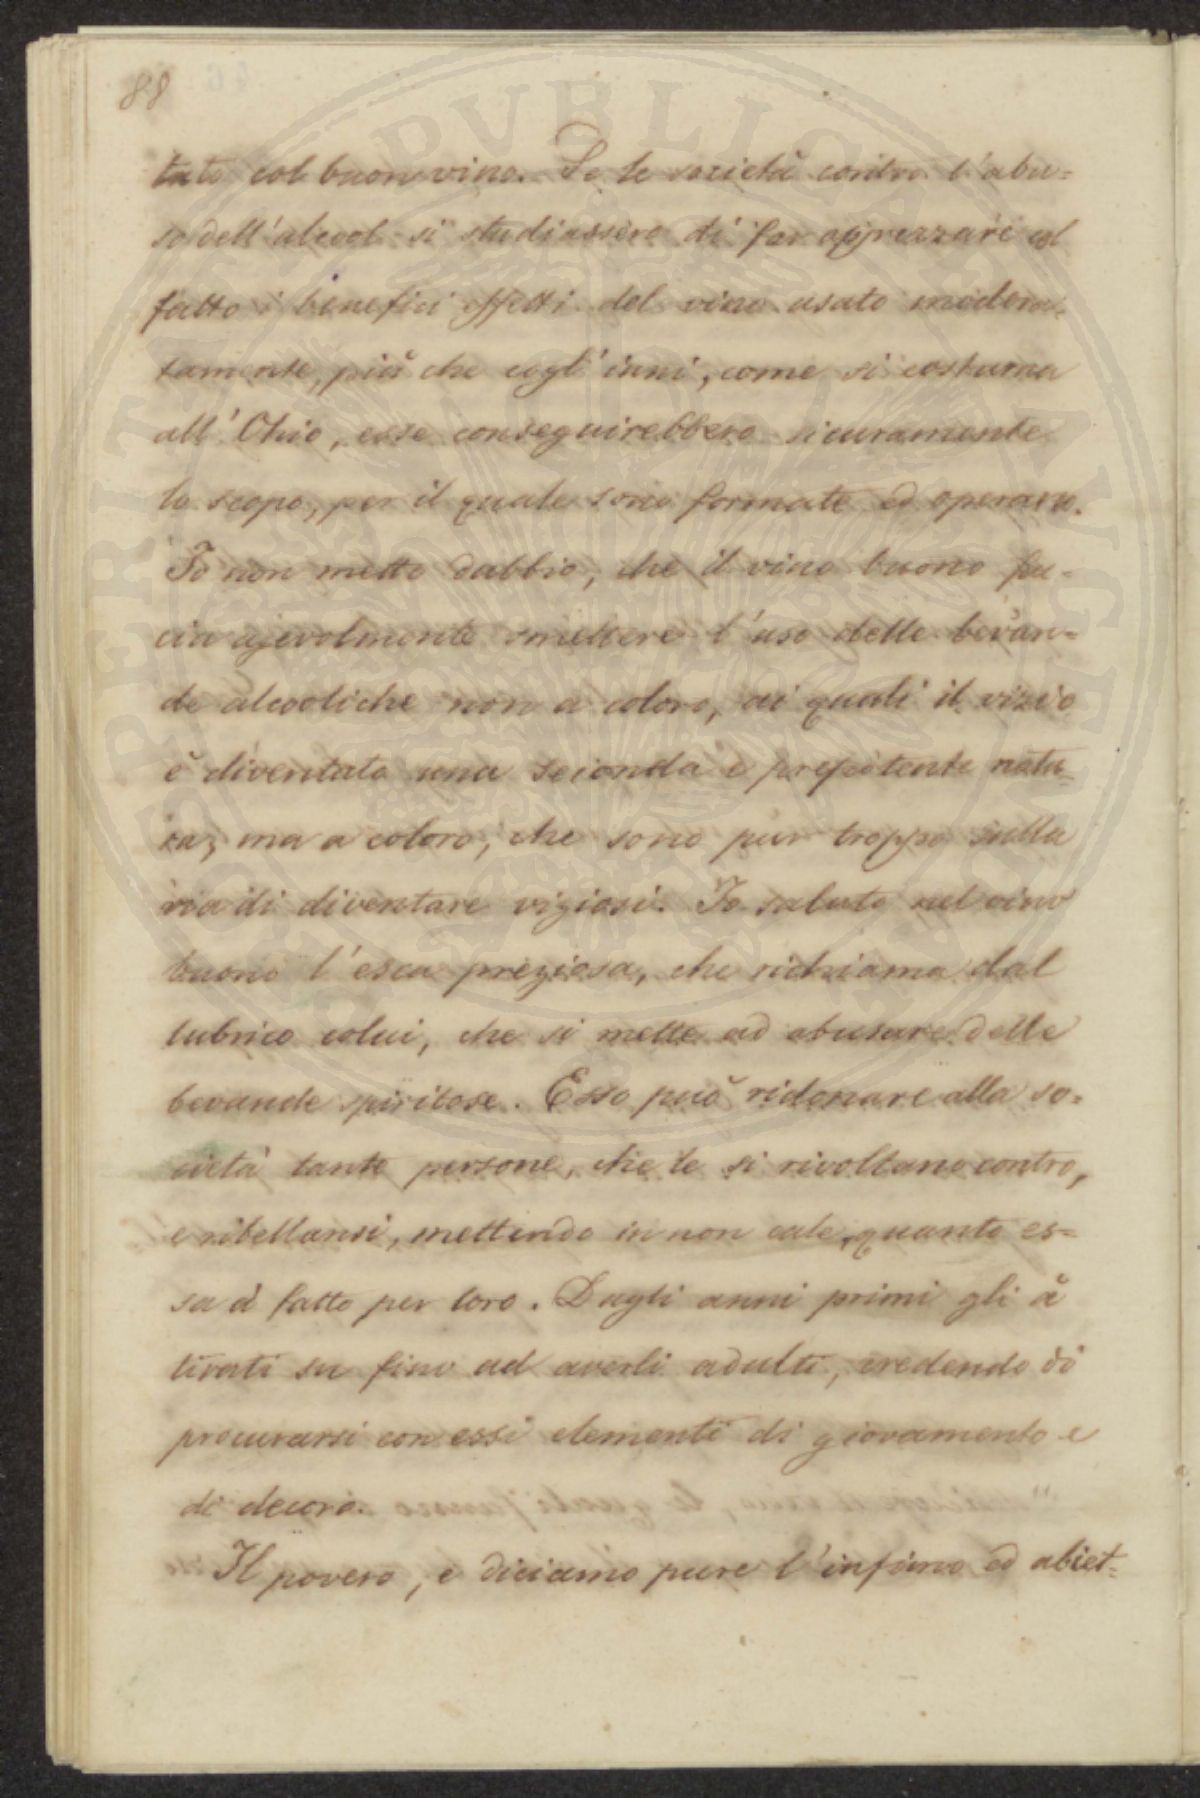 88
tato col buon vino. Se le società contro l'abu=
so dell'alcool si studiassero di far apprezzare col
fatto i benefici effetti del vino usato modera=
tamente, più che cogl'inni, come si costuma
all'Ohio, esse conseguirebbero sicuramente
lo scopo, per il quale sono formate ed operano.
Io non metto dubbio, che il vino buono fac=
cia agevolmente smettere l'uso delle bevan=
de alcooliche non a coloro, ai quali il vizio
è diventato una seconda e prepotente natu=
ra, ma a coloro, che sono pur troppo sulla
via di diventare viziosi. Io saluto nel vino
buono l'esca preziosa, che richiama dal
lubrico colui, che si mette ad abusare delle
bevande spiritose. Esso può ridonare alla so=
cietà tante persone, che le si rivoltano contro,
e ribellansi, mettendo in non cale, quanto es=
sa à fatto per loro. Dagli anni primi gli à
tirati su fino ad averli adulti, credendo di
procurarsi con essi elementi di giovamento e
di decoro.
Il povero, e diciamo pure l'infimo ed abiet=